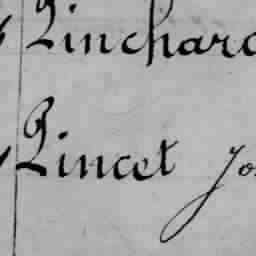 Pinchard
Pincet Jos